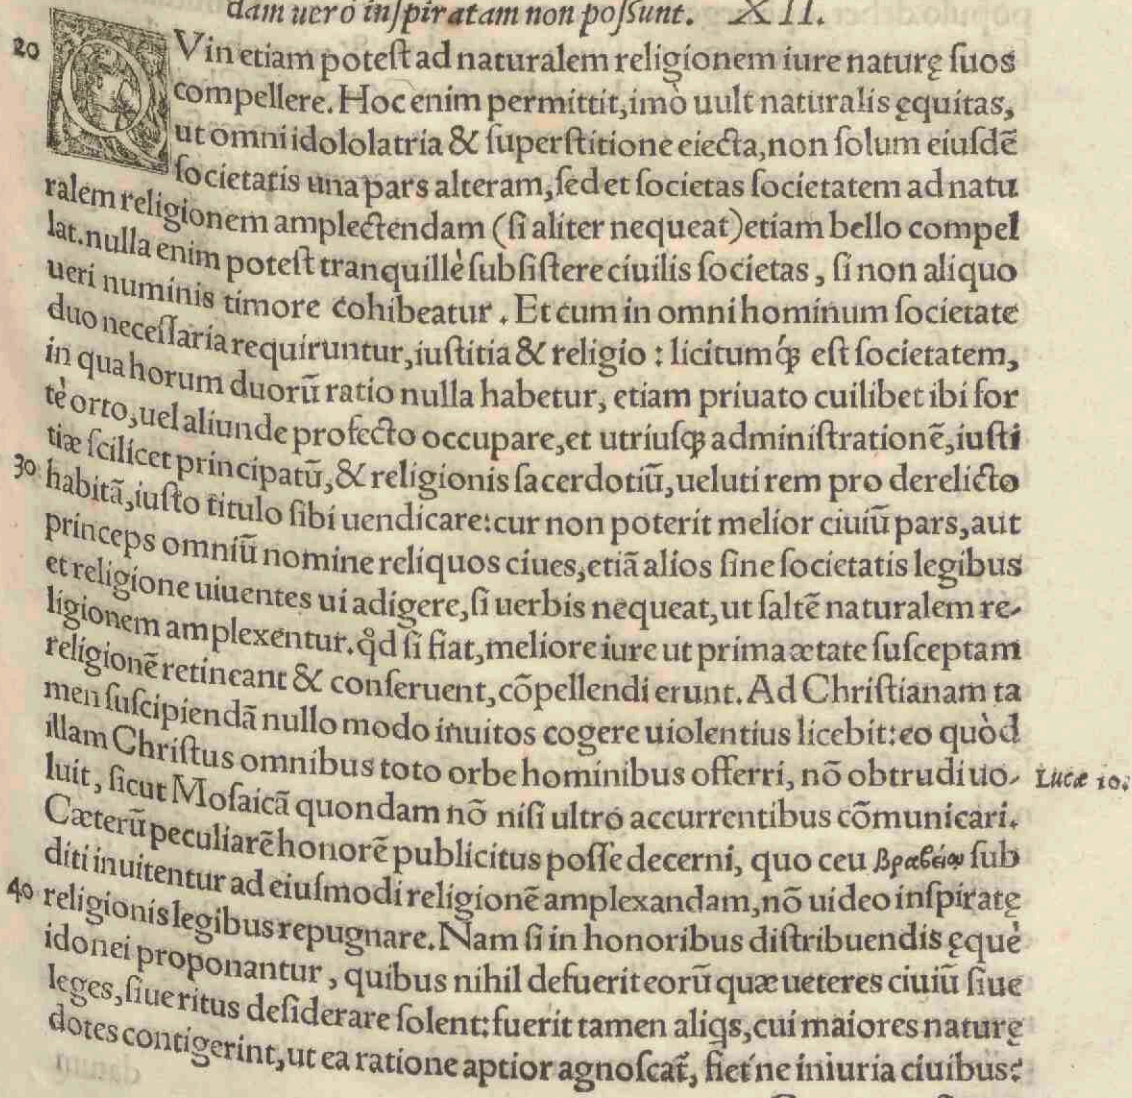 dam uerò inſpiratam non poſſunt. XII.
20 QVin etiam poteſt ad naturalem religionem iure naturę ſuos
compellere. Hoc enim permittit, imò uult naturalis ęquitas,
ut omni idololatria & ſuperſtitione eiecta, non ſolum eiuſdē
ſocietatis una pars alteram, ſed et ſocietas ſocietatem ad natu
ralem religionem amplectendam (ſi aliter nequeat) etiam bello compel
lat. nulla enim poteſt tranquillè ſubſiſtere ciuilis ſocietas, ſi non aliquo
ueri numinis timore cohibeatur. Et cum in omni hominum ſocietate
duo neceſſaria requiruntur, iuſtitia & religio: licitumꝙ́ eſt ſocietatem,
in qua horum duorū ratio nulla habetur, etiam priuato cuilibet ibi for
tè orto, uel aliunde profecto occupare, et utriuſꝙ adminiſtrationē, iuſti
tiæ ſcilicet principatū, & religionis ſacerdotiū, ueluti rem pro derelicto
30 habitā, iuſto titulo ſibi uendicare: cur non poterit melior ciuiū pars, aut
princeps omniū nomine reliquos ciues, etiā alios ſine ſocietatis legibus
et religione uiuentes ui adigere, ſi uerbis nequeat, ut ſaltē naturalem re-
ligionem amplexentur. qd̊ ſi fiat, meliore iure ut prima ætate ſuſceptam
religionē retineant & conſeruent, cōpellendi erunt. Ad Chriſtianam ta
men ſuſcipiendā nullo modo inuitos cogere uiolentius licebit: eo quòd
illam Chriſtus omnibus toto orbe hominibus offerri, nō obtrudi uo- Lucæ 10.
luit, ſicut Moſaicā quondam nō niſi ultro accurrentibus cōmunicari.
Cæterū peculiarē honorē publicitus poſſe decerni, quo ceu βραβείῳ ſub
diti inuitentur ad eiuſmodi religionē amplexandam, nō uideo inſpiratę
40 religionis legibus repugnare. Nam ſi in honoribus diſtribuendis ęquè
idonei proponantur, quibus nihil defuerit eorū quæ ueteres ciuiū ſiue
leges, ſiue ritus deſiderare ſolent: fuerit tamen aliqs, cui maiores naturę
dotes contigerint, ut ea ratione aptior agnoſcat̄, fiet ne iniuria ciuibus: